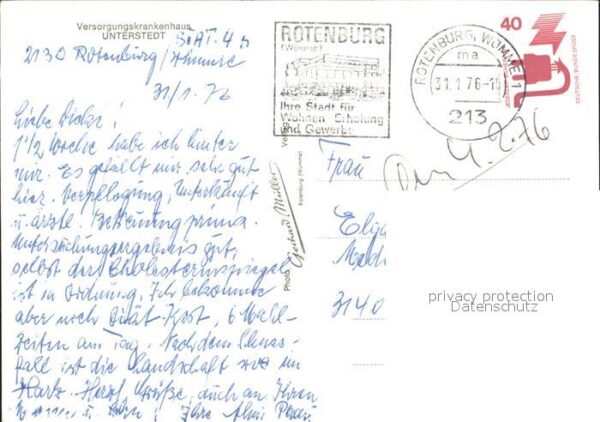 Versorgungskrankenhaus
UNTERSTEDT
STAT. 4b
2130 Rotenburg/Wümme
31/1. 76
Liebe
1 1/2 Woche habe ich hinter
mir. Es gefällt mir sehr gut
hier. Verpflegung, Unterkunft
u. ärztl. Betreuung prima.
Untersuchungsergebnis gut,
selbst der Cholesterinspiegel
ist in Ordnung. Ich bekomme
aber noch Diät-Kost, 6 Mahl-
zeiten am Tag. Nach dem Schnee-
fall ist die Landschaft wie im
Harz. Herzl. Grüße, auch an Ihren
u. Ihre
ROTENBURG
(Wümme)
Ihre Stadt für
Wohnen Erholung
und Gewerbe
ROTENBURG, WÜMME 1
ma
31.1.76-18
213
40
DEUTSCHE BUNDESPOST
4.2.76
Verlag
Photo Gerhard Müller
Rotenburg (Wümme)
Frau
Elga
3140
privacy protection
Datenschutz